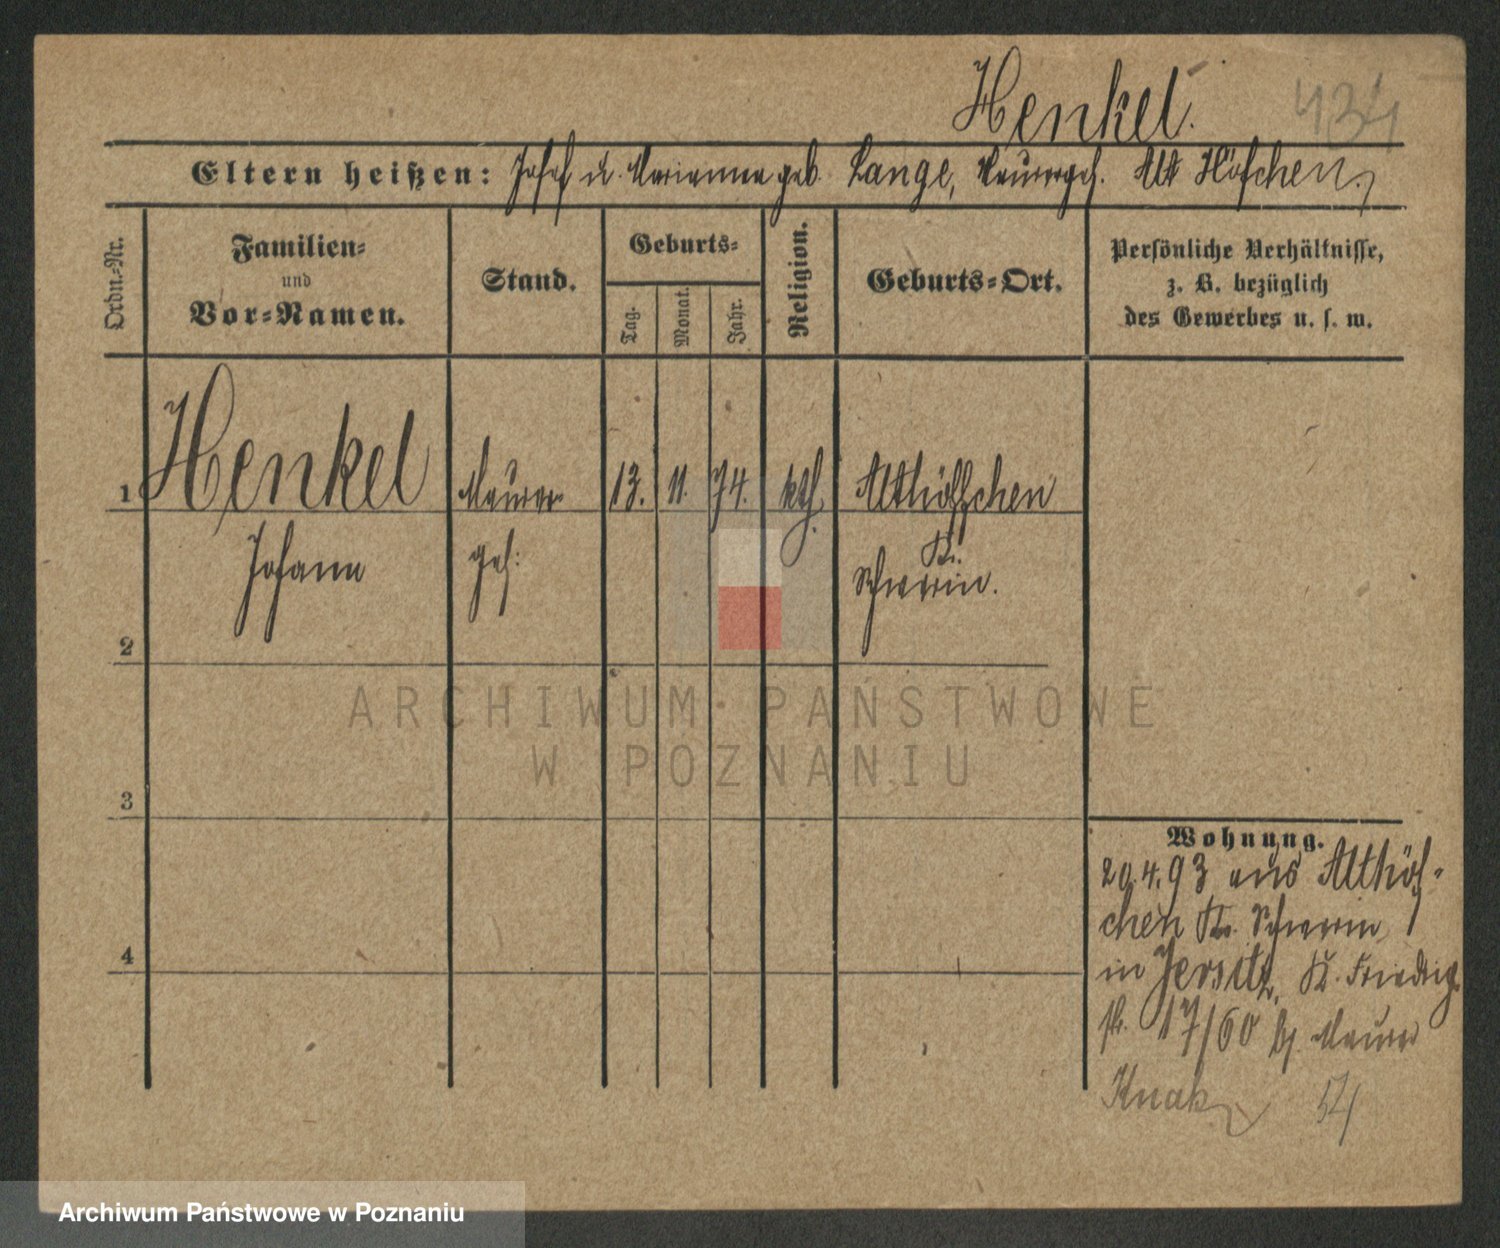 Henkel.
434
Eltern heißen: Josef u. Marianna geb. Lange, Maurerges. Alt Höfchen.
Ordn.-Nr.
Familien-
und
Vor-Namen.
Stand.
Geburts-
Tag.
Monat.
Jahr.
Religion.
Geburts-Ort.
Persönliche Verhältnisse,
z. B. bezüglich
des Gewerbes u. s. w.
1 Henkel Maurer 13. 11. 74. kth. Althöfchen
Johann ges: Kr.
Schwerin.
2
3
4
ARCHIWUM PAŃSTWOWE
W POZNANIU
Wohnung.
20.4.93 aus Althöf-
chen Kr. Schwerin
in Jersitz, Kl. Friedrich
str. 17/60 bei Maurer
Knak 54
Archiwum Państwowe w Poznaniu